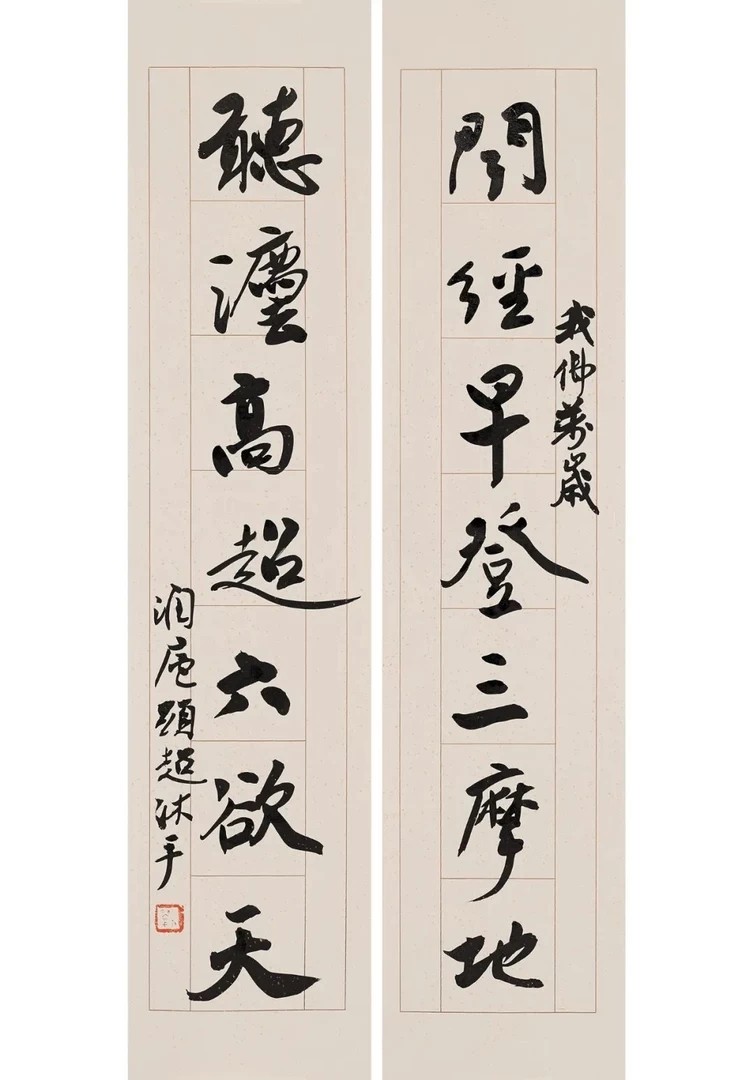 我佛萬歲
聞經早登三摩地
聽灋高超六欲天
超沐手